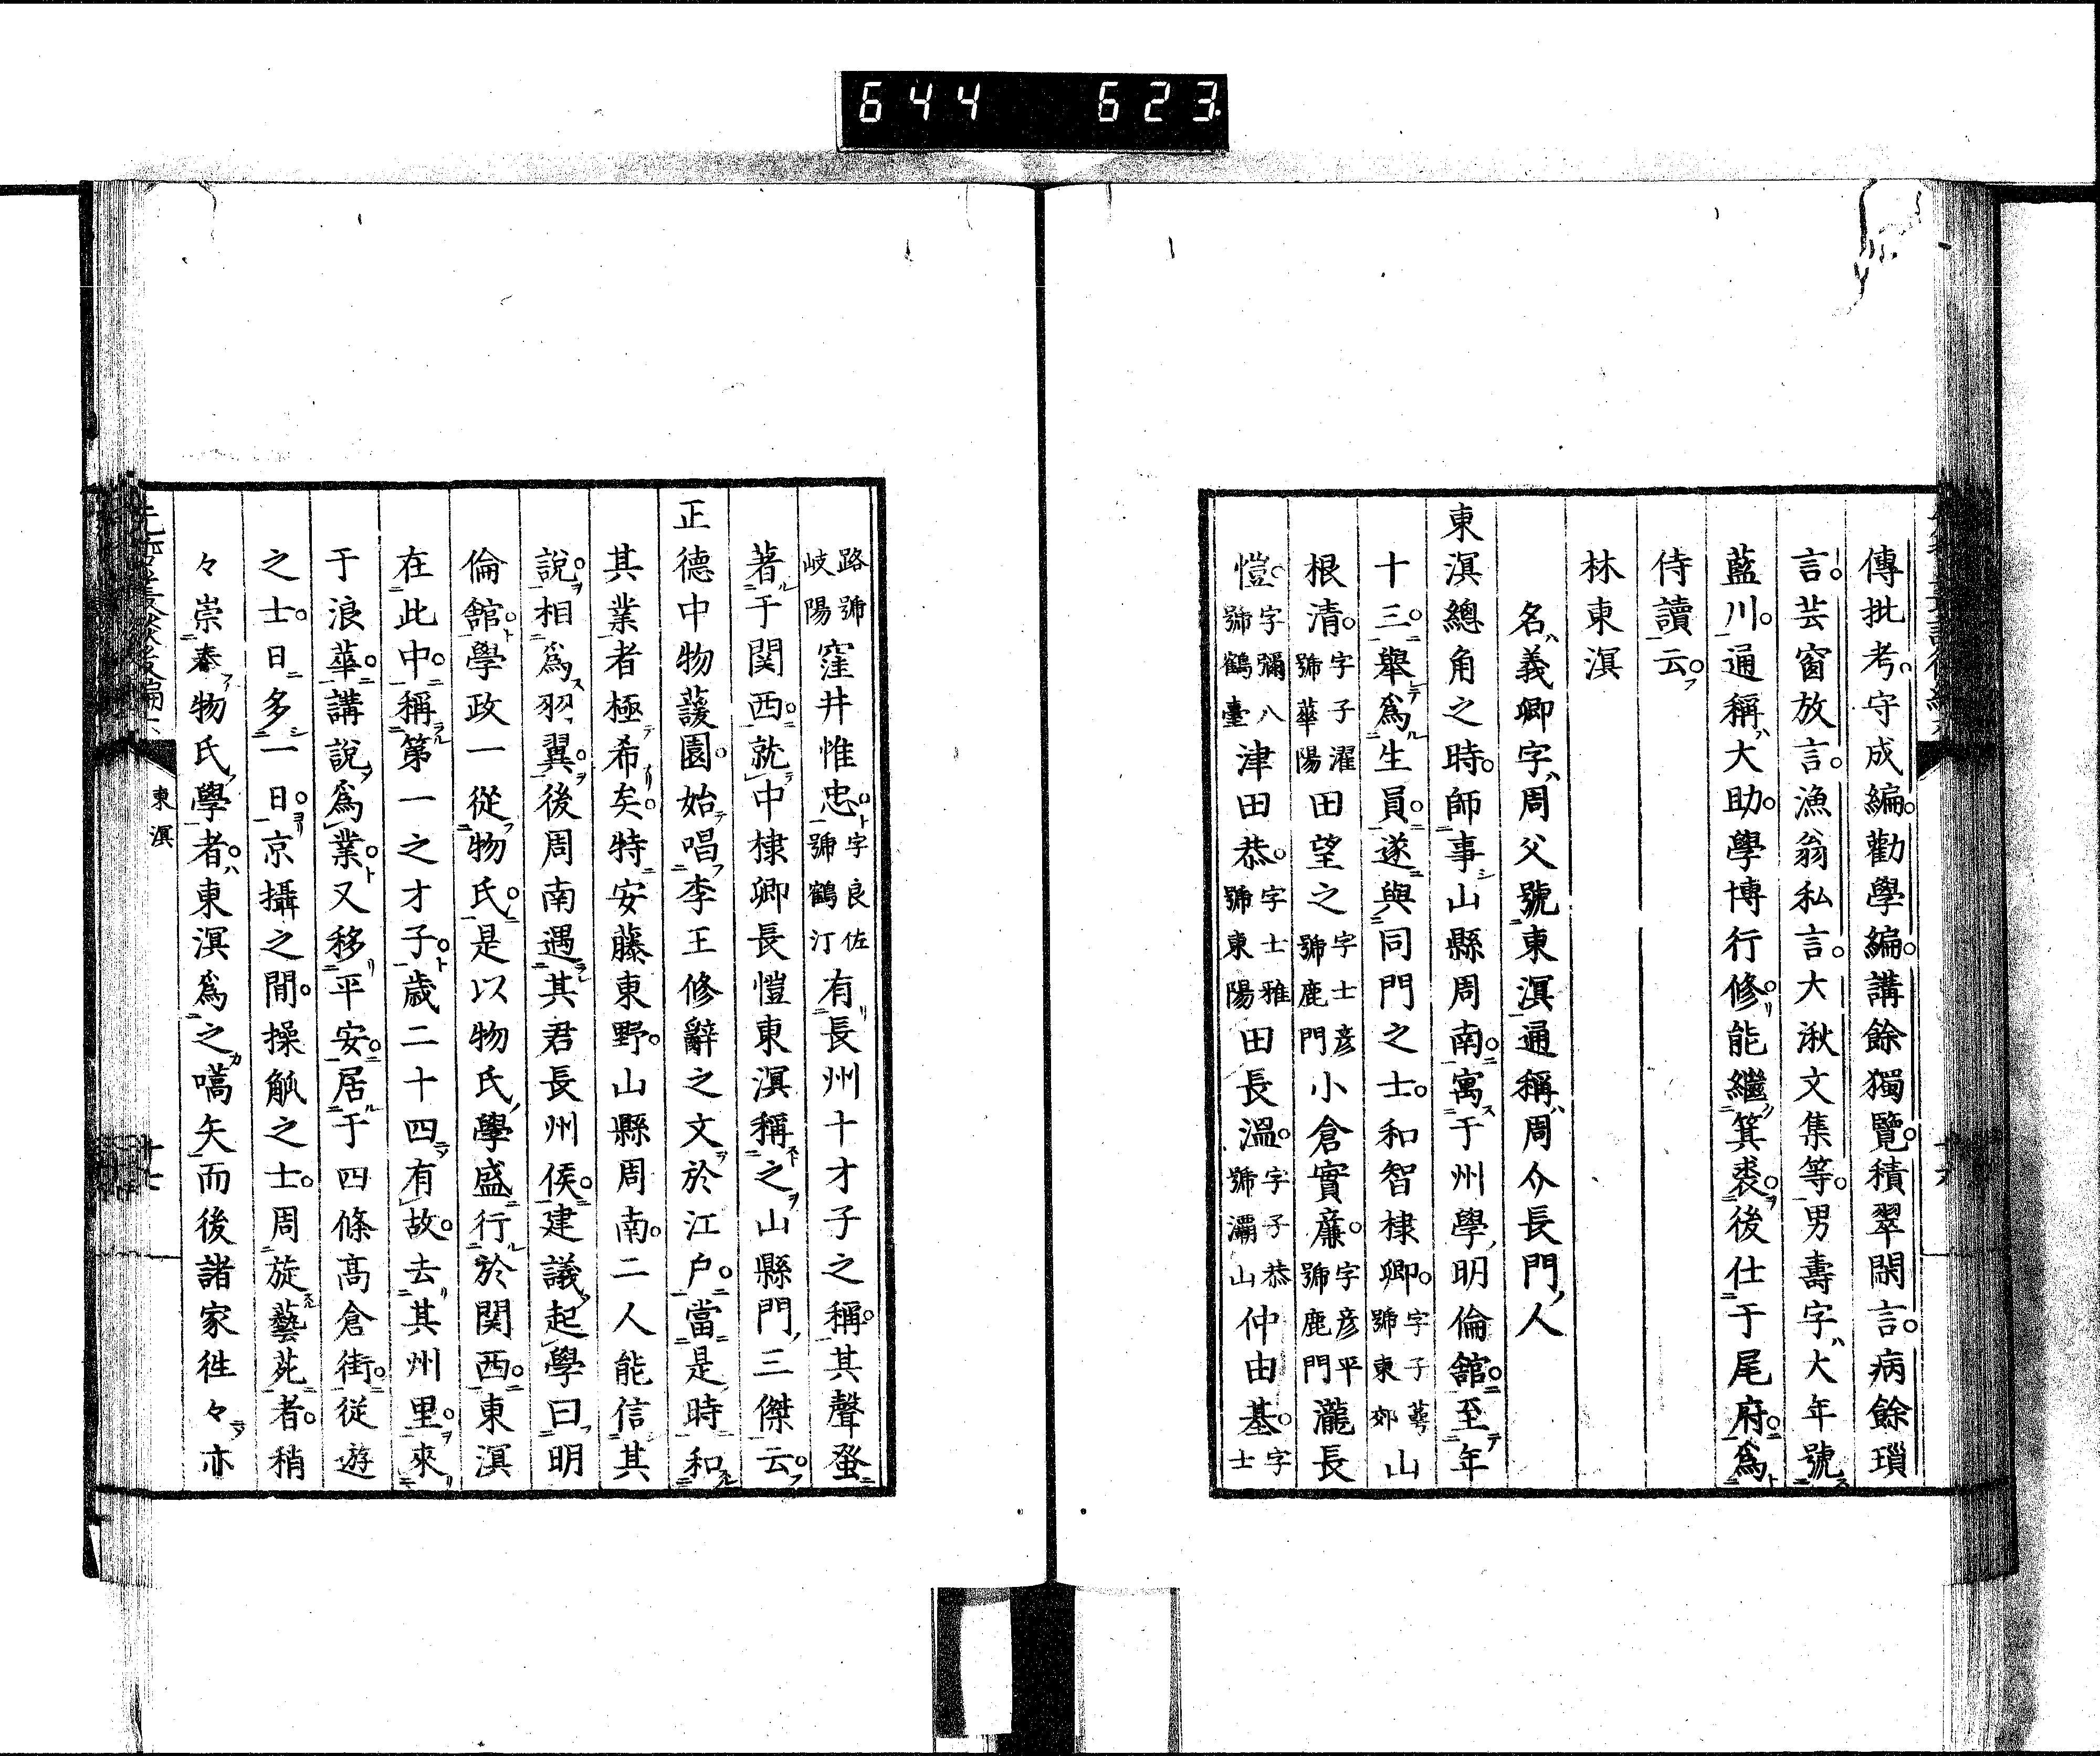 644 623
傳批考。守成編。勸學編。講餘獨覽。積翠閑言。病餘瑣
言。芸窗放言。漁翁私言。大湫文集等。男壽字ハ大年號
藍川。通稱ハ大助。學博行修。能繼箕裘。後仕于尾府。爲
侍讀云。
林東溟
名ハ義卿字ハ周父號東溟通稱ハ周介長門ノ人
東溟總角之時。師事山縣周南。寓于州學ノ明倫館。至年
十三。擧爲生員。遂與同門之士。和智棣卿。字子蕚號東郊山
根清。字子濯號華陽田望之字士彥號鹿門小倉實廉。字彥平號鹿門瀧長
愷。字彌八號鶴臺津田恭。字士雅號東陽田長溫。字子恭號灞山仲由基。字士
路號岐陽窪井惟忠。字良佐號鶴汀有長州十才子之稱。其聲蜚
著于関西。就中棣卿長愷東溟稱之山縣門ノ三傑云。
正德中物蘐園。始唱李王修辭之文於江戶。當是時和
其業者極希矣。特安藤東野。山縣周南。二人能信其
說。相爲羽翼。後周南遇其君長州侯。建議起學曰明
倫館。學政一從物氏。是以物氏ノ學盛行於関西。東溟
在此中。稱第一之才子。歲二十四有故。去其州里。來
于浪華。講說爲業。又移平安。居于四條高倉街。從遊
之士。日多。一日。京攝之間。操觚之士。周旋藝苑者。稍
々崇奉物氏ノ學者。ハ東溟爲之嚆矢而後諸家徃々亦
東溟